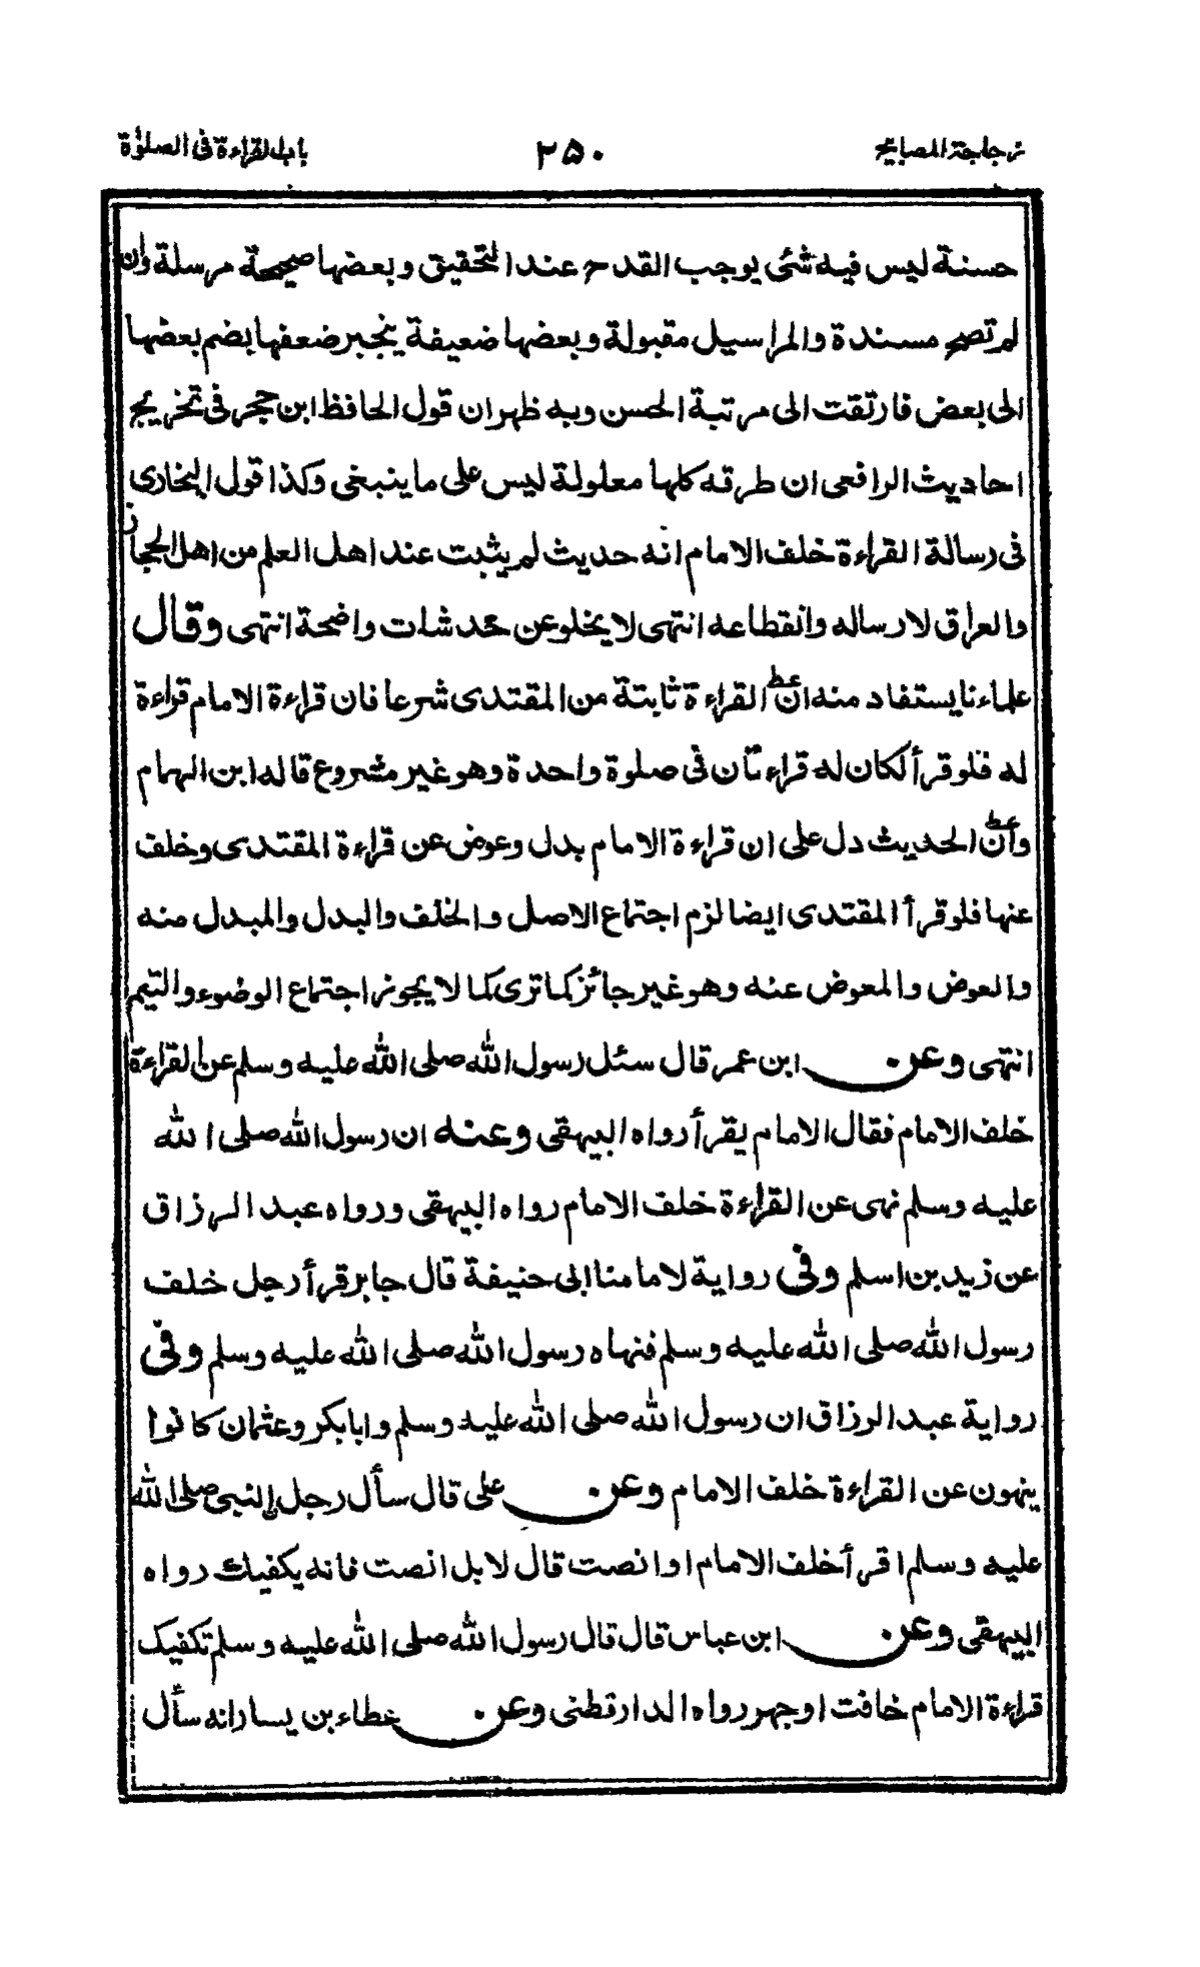 زجاجة المصابیح ۲۵۰ باب القراءة فی الصلوٰة
حسنة لیس فیه شئی یوجب القدح عند التحقیق وبعضها صحیحة مرسلة وان
لم تصح مسندة والمراسیل مقبولة وبعضها ضعیفة ینجبر ضعفها بضم بعضها
الی بعض فارتقت الی مرتبة الحسن وبه ظهر ان قول الحافظ ابن حجر فی تخریج
احادیث الرافعی ان طرقه کلها معلولة لیس علی ما ینبغی وکذا قول البخاری
فی رسالة القراءة خلف الامام انه حدیث لم یثبت عند اهل العلم من اهل الحجاز
والعراق لارساله وانقطاعه انتهی لا یخلو عن خدشات واضحة انتهی وقال
علماءنا یستفاد منه ان القراءة ثابتة من المقتدی شرعا فان قراءة الامام قراءة
له فلو قرأ لکان له قراءتان فی صلوة واحدة وهو غیر مشروع قاله ابن الهمام
وان الحدیث دل علی ان قراءة الامام بدل وعوض عن قراءة المقتدی وخلف
عنها فلو قرأ المقتدی ایضا لزم اجتماع الاصل والخلف والبدل والمبدل منه
والعوض والمعوض عنه وهو غیر جائز کما تری کما لا یجوز اجتماع الوضوء والتیمم
انتهی وعن ابن عمر قال سئل رسول الله صلی الله علیه وسلم عن القراءة
خلف الامام فقال الامام یقرأ رواه البیهقی وعنه ان رسول الله صلی الله
علیه وسلم نهی عن القراءة خلف الامام رواه البیهقی ورواه عبد الرزاق
عن زید بن اسلم وفی روایة لامامنا ابی حنیفة قال جابر قرأ رجل خلف
رسول الله صلی الله علیه وسلم فنهاه رسول الله صلی الله علیه وسلم وفی
روایة عبد الرزاق ان رسول الله صلی الله علیه وسلم وابابکر وعثمان کانوا
ینهون عن القراءة خلف الامام وعن علی قال سأل رجل النبی صلی الله
علیه وسلم اقرأ خلف الامام او انصت قال لا بل انصت فانه یکفیک رواه
البیهقی وعن ابن عباس قال قال رسول الله صلی الله علیه وسلم تکفیک
قراءة الامام خافت او جهر رواه الدارقطنی وعن عطاء بن یسار انه سأل